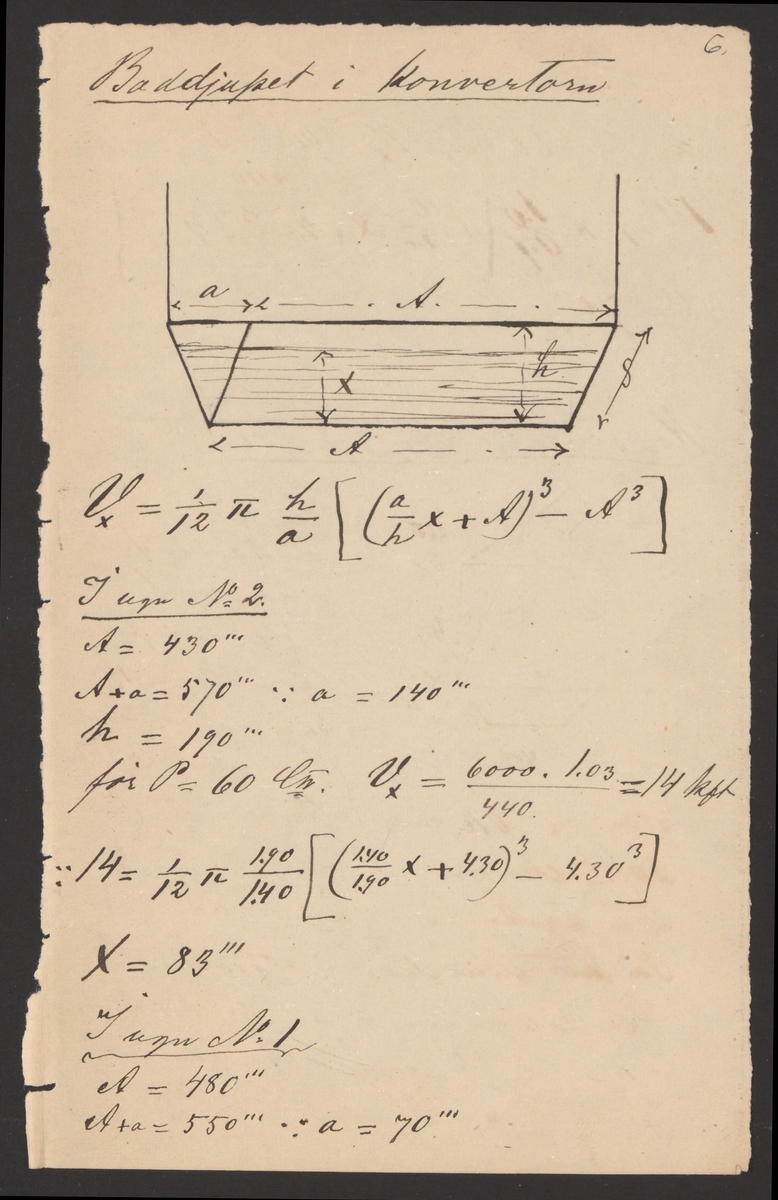 6.
Baddjupet i Konvertorn
a A
x h s
A
Vx = 1/12 π h/a [(a/h x + A)³ - A³]
I ugn No 2.
A = 430'''
A+a = 570''' ∵ a = 140'''
h = 190'''
för P = 60 Ctr. Vx = 6000. 1.03 / 440. = 14 kft
∵ 14 = 1/12 π 1.90/1.40 [(1.40/1.90 x + 4.30)³ - 4.30³]
X = 83'''
I ugn No 1
A = 480'''
A+a = 550''' ∵ a = 70'''